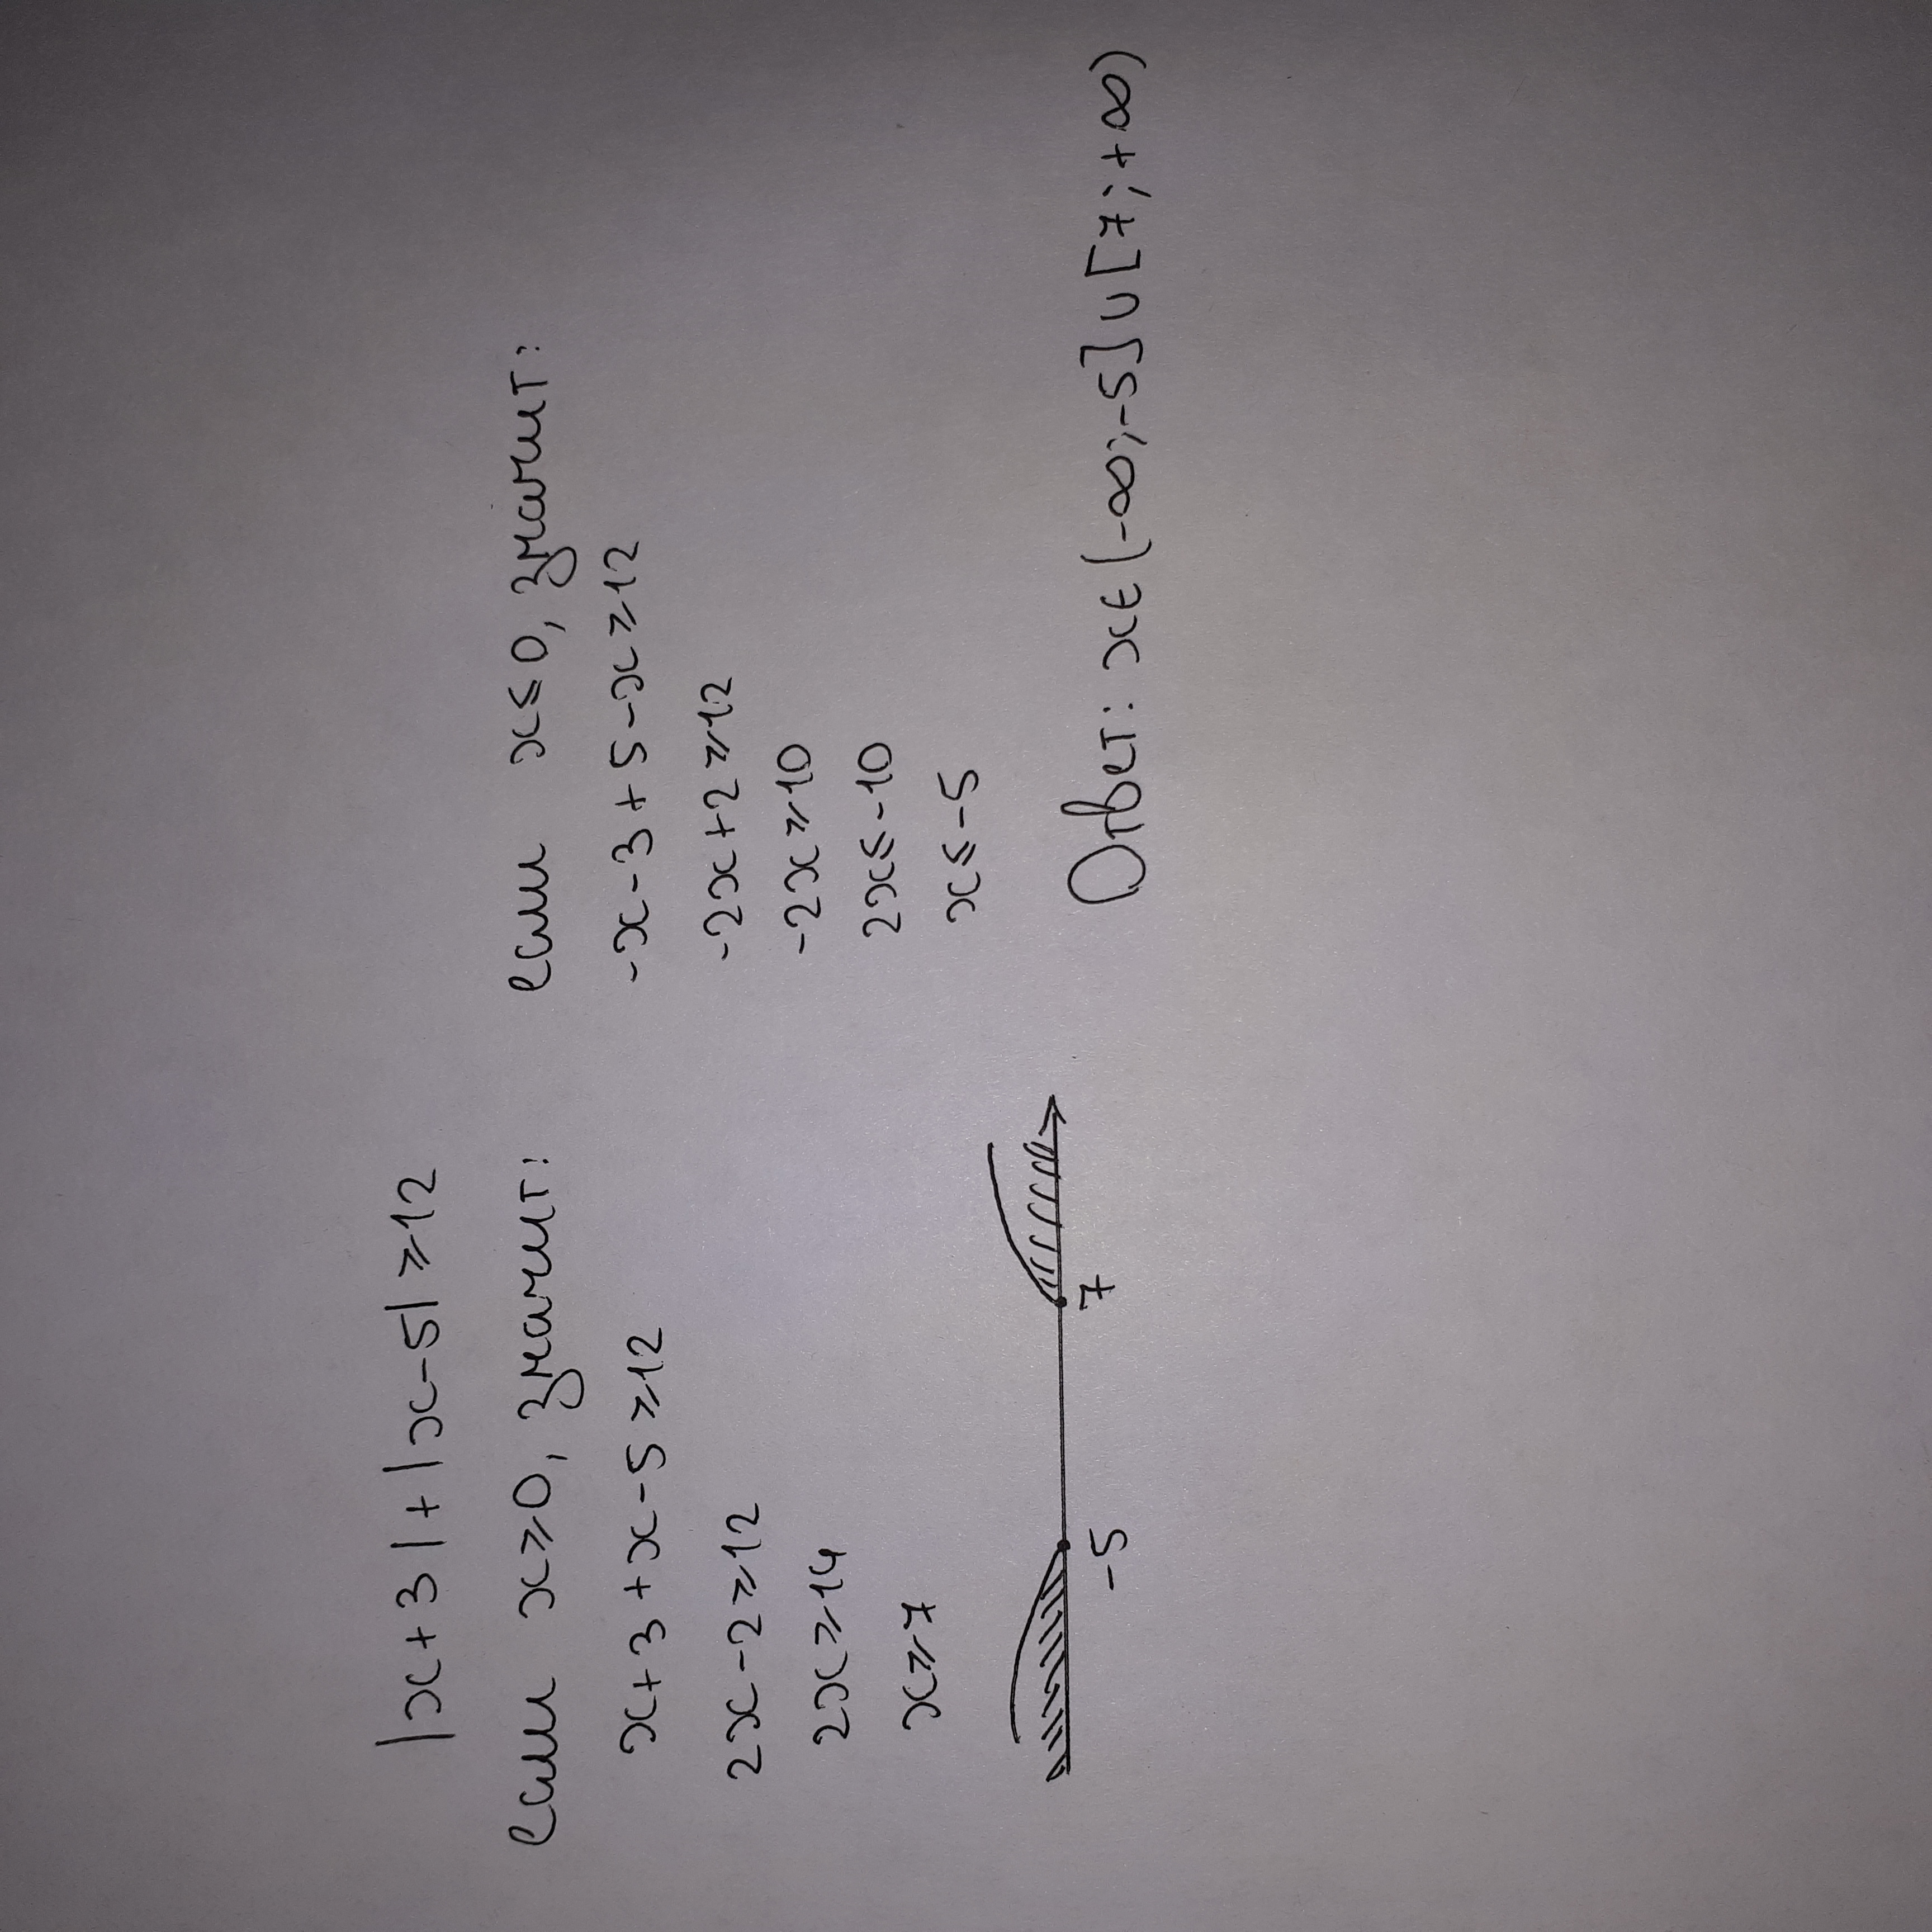 |x+3|+|x-5|⩾12
если x⩾0, значит:
x+3+x-5⩾12
2x-2⩾12
2x⩾14
x⩾7
если x⩽0, значит:
-x-3+5-x⩾12
-2x+2⩾12
-2x⩾10
2x⩽-10
x⩽-5
-5 7
Ответ: x∈(-∞;-5]∪[7;+∞)